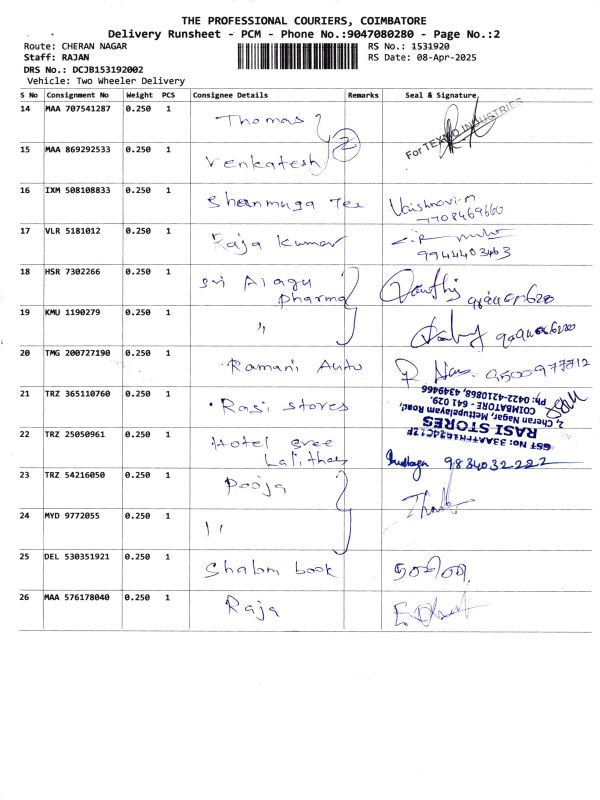 THE PROFESSIONAL COURIERS, COIMBATORE
Delivery Runsheet - PCM - Phone No.:9047080280 - Page No.:2
Route: CHERAN NAGAR
RS No.: 1531920
Staff: RAJAN
RS Date: 08-Apr-2025
DRS No.: DCJB153192002
Vehicle: Two Wheeler Delivery
S No Consignment No Weight PCS Consignee Details Remarks Seal & Signature
14 MAA 707541287 0.250 1 Thomas
For TEXMO INDUSTRIES
2
15 MAA 869292533 0.250 1 Venkatesh
16 IXM 508108833 0.250 1 Shanmuga Tex Vaishnavi.M
7708469660
17 VLR 5181012 0.250 1 Raja Kumar
9944403463
18 HSR 7302266 0.250 1 Sri Alagu
Pharma
19 KMU 1190279 0.250 1 "
20 TMG 200727190 0.250 1 Ramani Auto 9500977712
21 TRZ 365110760 0.250 1 Rasi stores
GST No: 
RASI STORES
2, Cheran Nagar, Mettupalayam Road,
COIMBATORE - 641 029.
Ph: 0422-4210868, 4349466
22 TRZ 25050961 0.250 1 Hotel Sree
Lalithas 9834032222
23 TRZ 54216050 0.250 1 Pooja
24 MYD 9772055 0.250 1 "
25 DEL 530351921 0.250 1 Shalom book
26 MAA 576178040 0.250 1 Raja